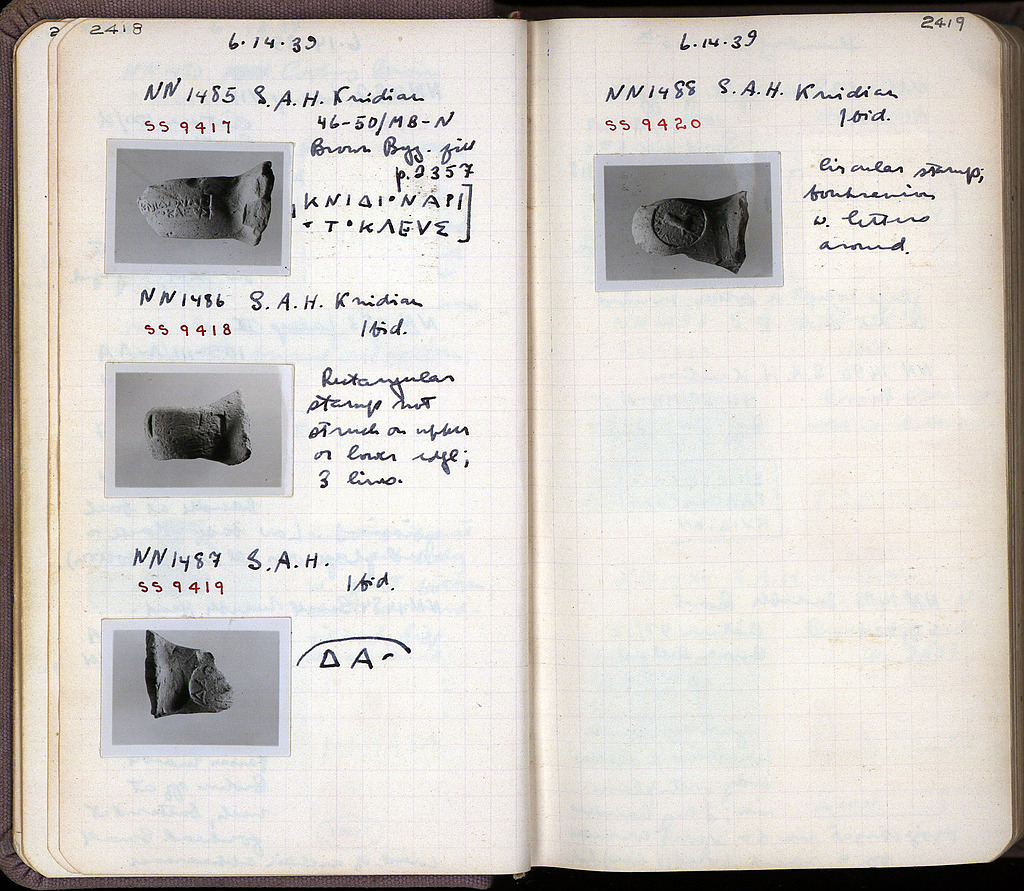 2418
6.14.39
NN 1485 S.A.H. Knidian
SS 9417
46-50/MB-N
Brown Byz. fill
p. 2357
ΚΝΙΔΙ·ΝΑΡΙ
·Τ·ΚΛΕΥΣ
NN 1486 S.A.H. Knidian
SS 9418
Ibid.
Rectangular
stamp not
struck on upper
or lower edge;
3 lines.
NN 1487 S.A.H.
SS 9419
Ibid.
ΔΑ
2419
6.14.39
NN 1488 S.A.H. Knidian
SS 9420
Ibid.
Circular stamp;
boukranion
w. letters
around.